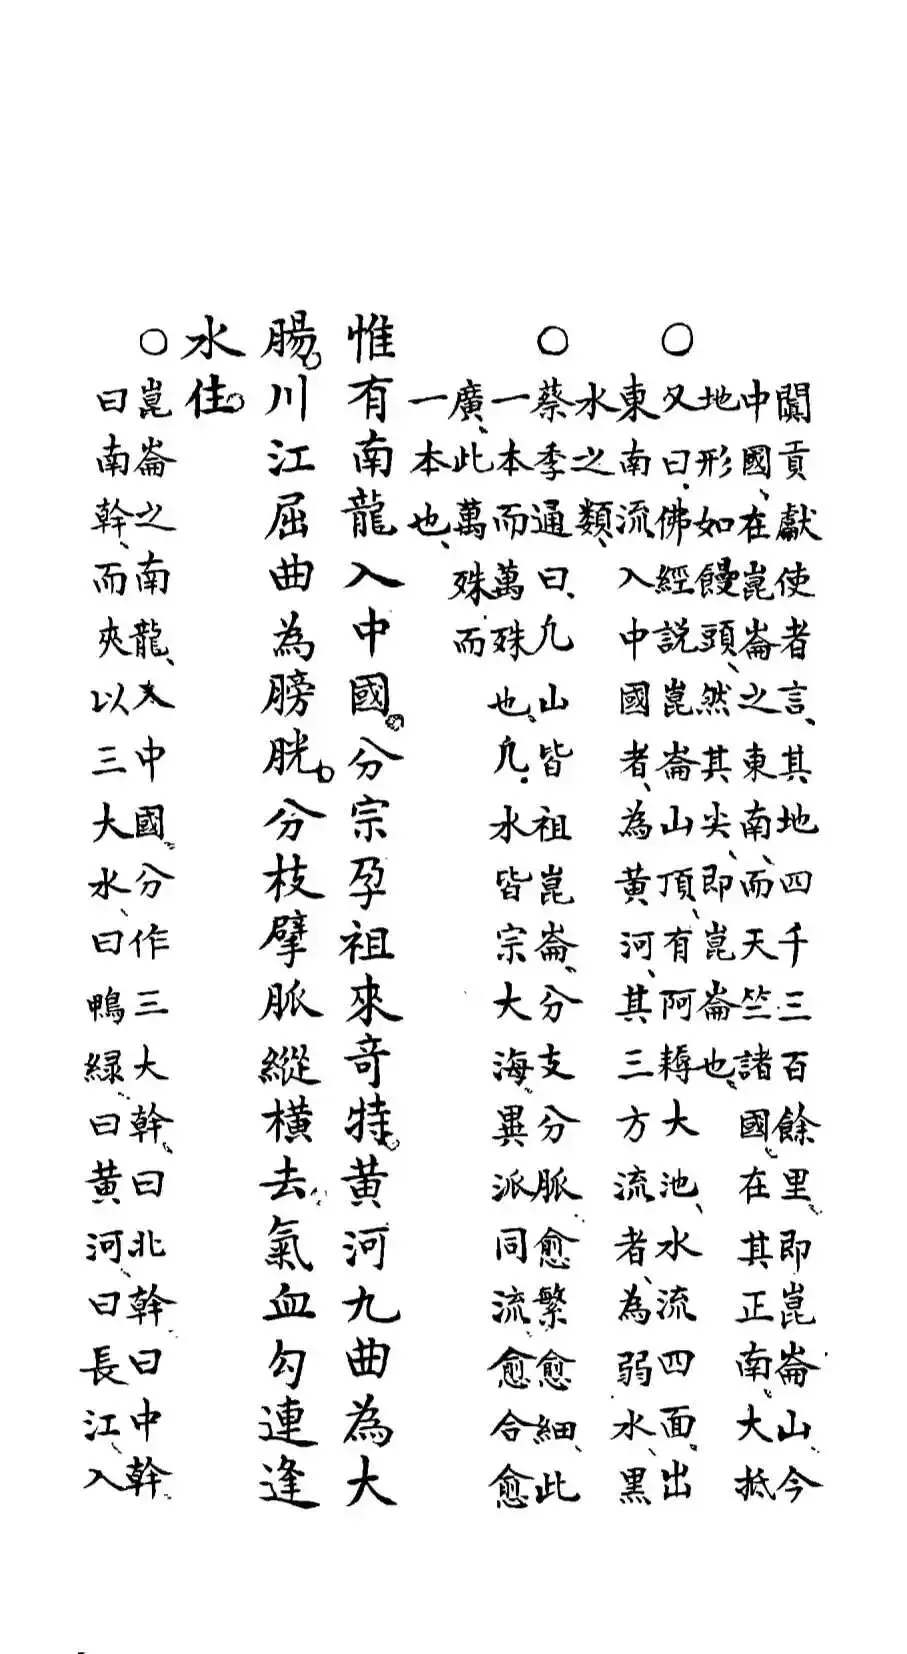 闐貢獻使者言、其地四千三百餘里、即崑崙山、今
中國、在崑崙之東南、而天竺諸國、在其正南、大抵
地形如饅頭、然其尖、即崑崙也、
○又曰、佛經説崑崙山頂、有阿耨大池、水流四面、出
東南流、入中國者、為黄河、其三方流者、為弱水、黒
水之類、
○蔡季通曰、凢山皆祖崑崙、分支分脈、愈繁愈細、此
一本而萬殊也、凢水皆宗大海、異派同流、愈合愈
廣、此萬殊而
一本也、
惟有南龍入中國。分宗孕祖來奇特。黄河九曲為大
腸。川江屈曲為膀胱。分枝擘脈縱横去。氣血勾連逢
水住。
○崑崙之南龍、入中國、分作三大幹、曰北幹、曰中幹、
曰南幹、而夾以三大水、曰鴨緑、曰黄河、曰長江、入